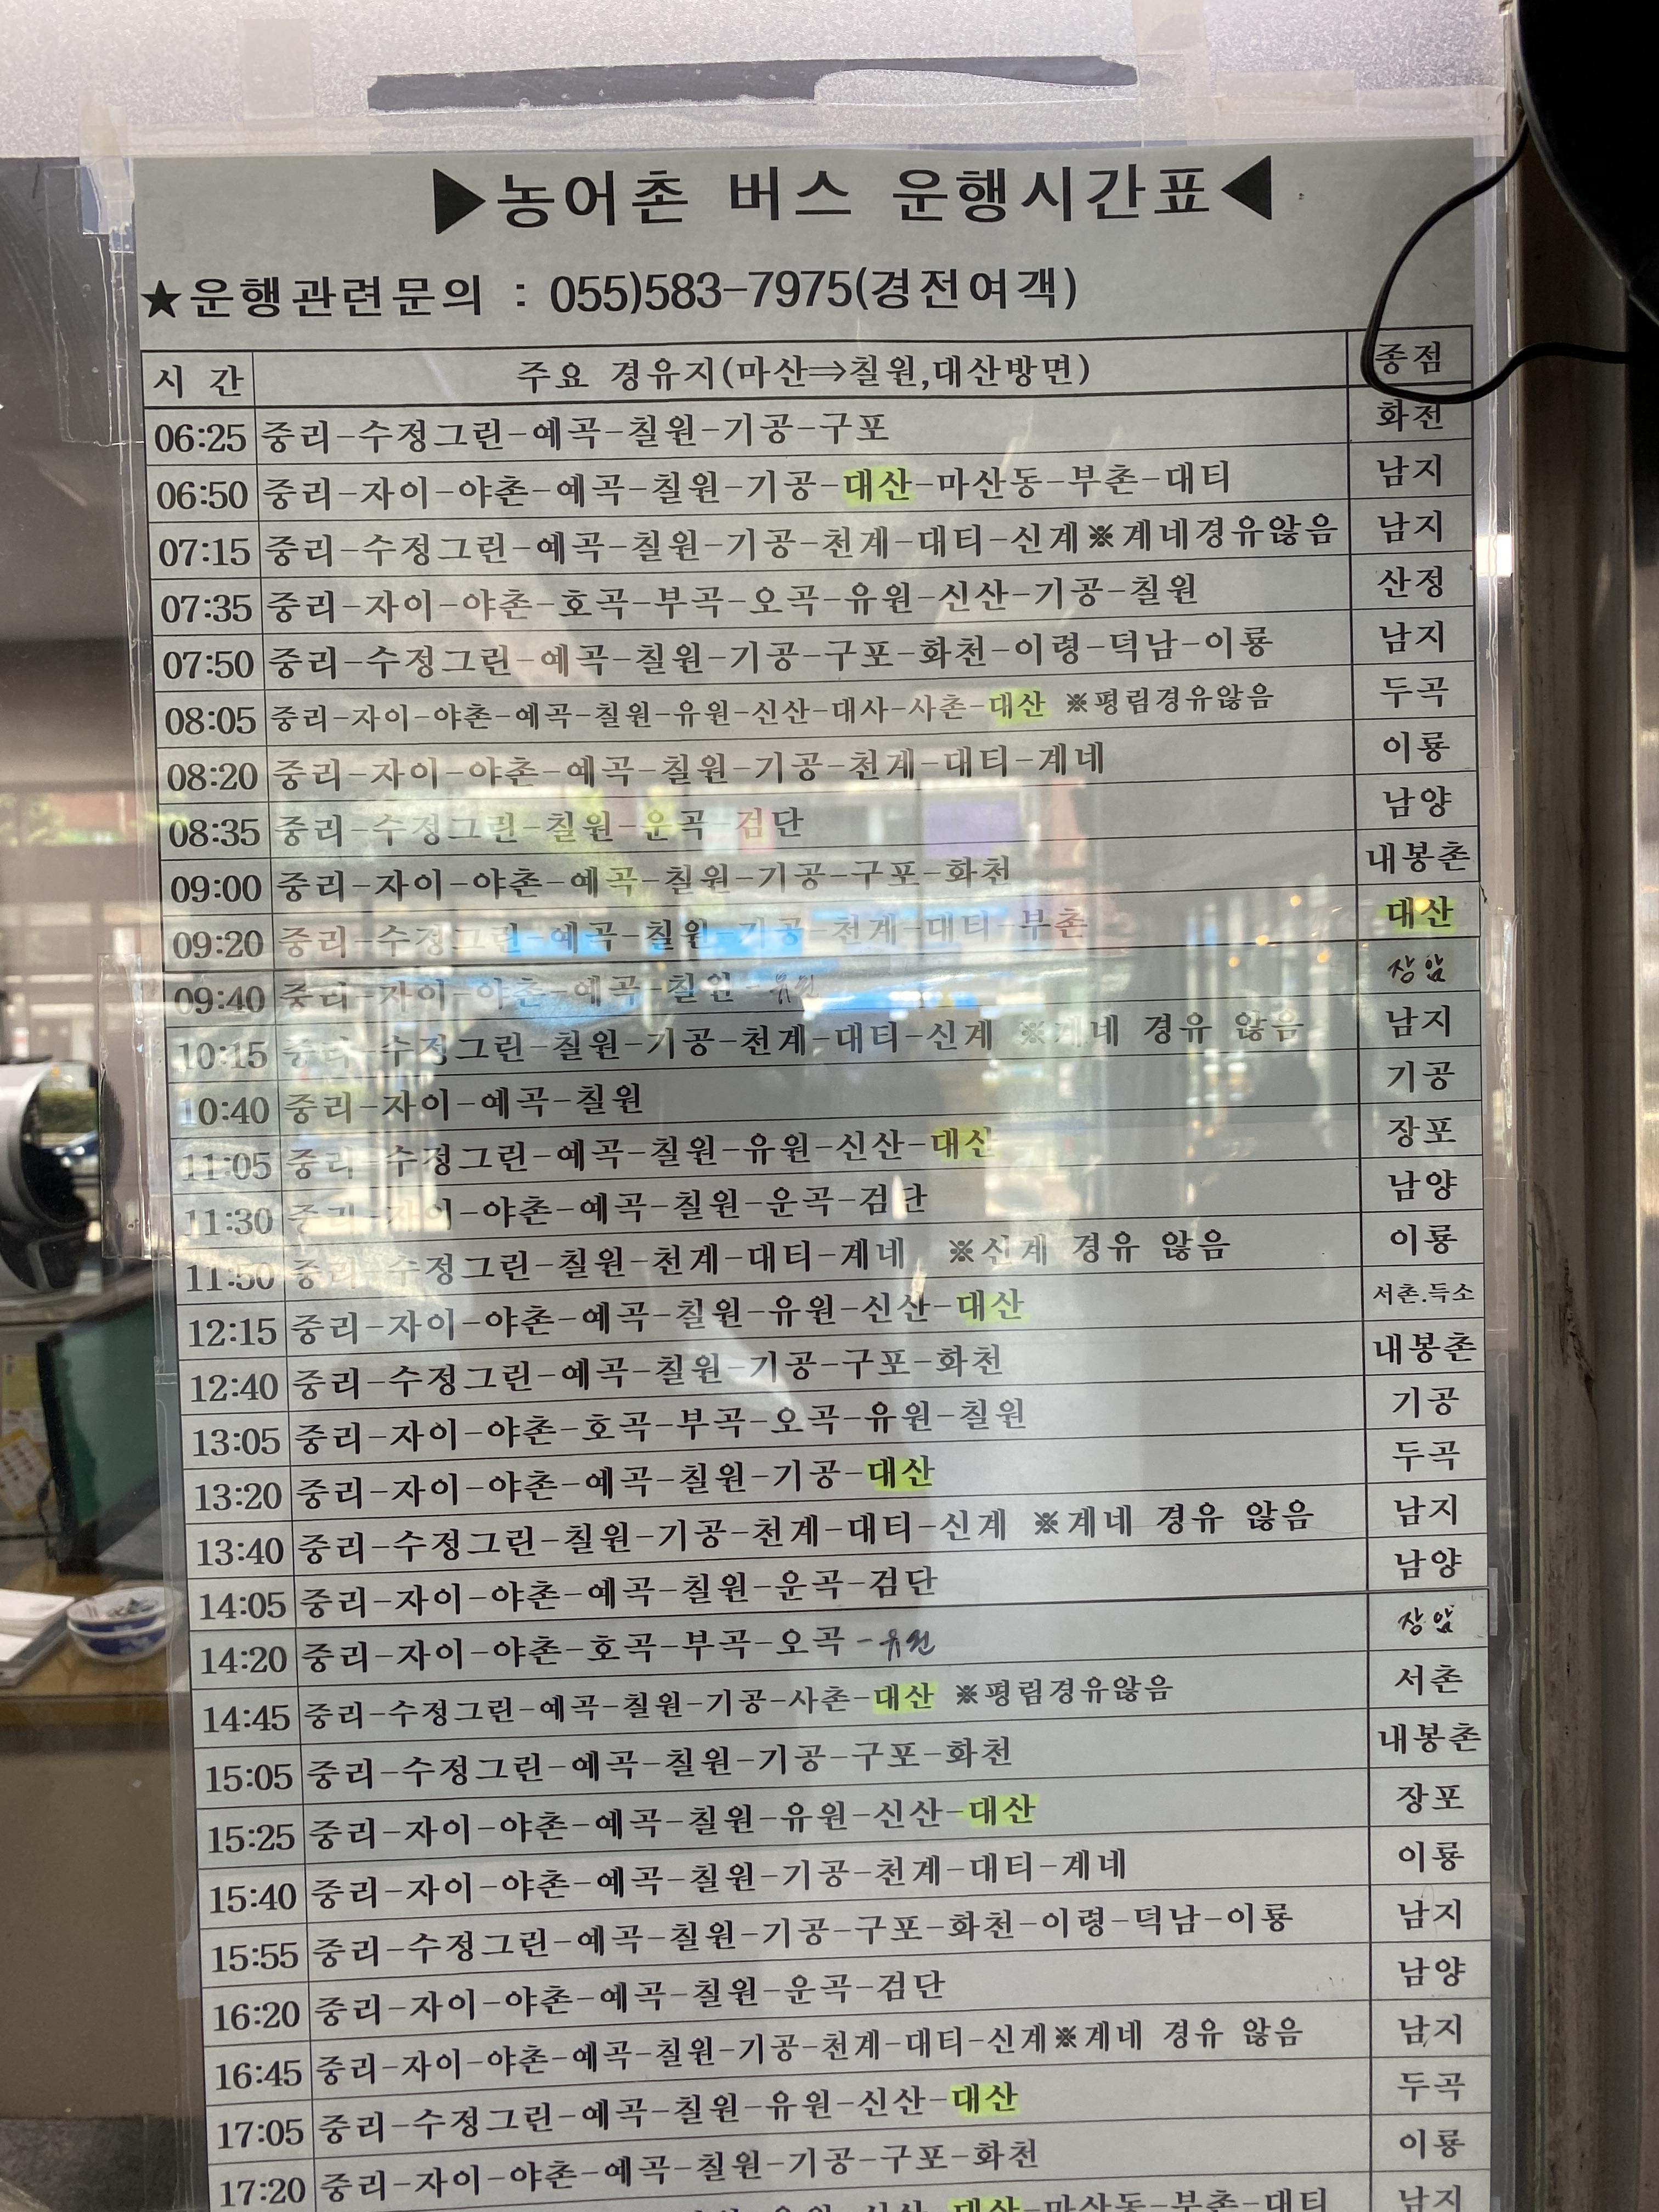 ▶농어촌 버스 운행시간표◀
★운행관련문의 : 055)583-7975(경전여객)
시 간 주요 경유지(마산⇒칠원,대산방면) 종점
06:25 중리-수정그린-예곡-칠원-기공-구포 화천
06:50 중리-자이-야촌-예곡-칠원-기공-대산-마산동-부촌-대티 남지
07:15 중리-수정그린-예곡-칠원-기공-천계-대티-신계※계네경유않음 남지
07:35 중리-자이-야촌-호곡-부곡-오곡-유원-신산-기공-칠원 산정
07:50 중리-수정그린-예곡-칠원-기공-구포-화천-이령-덕남-이룡 남지
08:05 중리-자이-야촌-예곡-칠원-유원-신산-대사-사촌-대산 ※평림경유않음 두곡
08:20 중리-자이-야촌-예곡-칠원-기공-천계-대티-계네 이룡
08:35 중리-수정그린-칠원-운곡-검단 남양
09:00 중리-자이-야촌-예곡-칠원-기공-구포-화천 내봉촌
09:20 중리-수정그린-예곡-칠원-기공-천계-대티-부촌 대산
09:40 중리-자이-야촌-예곡-칠원-유원 상암
10:15 중리-수정그린-칠원-기공-천계-대티-신계 ※계네 경유 않음 남지
10:40 중리-자이-예곡-칠원 기공
11:05 중리-수정그린-예곡-칠원-유원-신산-대산 장포
11:30 중리-자이-야촌-예곡-칠원-운곡-검단 남양
11:50 중리-수정그린-칠원-천계-대티-계네 ※신계 경유 않음 이룡
12:15 중리-자이-야촌-예곡-칠원-유원-신산-대산 서촌.득소
12:40 중리-수정그린-예곡-칠원-기공-구포-화천 내봉촌
13:05 중리-자이-야촌-호곡-부곡-오곡-유원-칠원 기공
13:20 중리-자이-야촌-예곡-칠원-기공-대산 두곡
13:40 중리-수정그린-칠원-기공-천계-대티-신계 ※계네 경유 않음 남지
14:05 중리-자이-야촌-예곡-칠원-운곡-검단 남양
14:20 중리-자이-야촌-호곡-부곡-오곡-유원 상암
14:45 중리-수정그린-예곡-칠원-기공-사촌-대산 ※평림경유않음 서촌
15:05 중리-수정그린-예곡-칠원-기공-구포-화천 내봉촌
15:25 중리-자이-야촌-예곡-칠원-유원-신산-대산 장포
15:40 중리-자이-야촌-예곡-칠원-기공-천계-대티-계네 이룡
15:55 중리-수정그린-예곡-칠원-기공-구포-화천-이령-덕남-이룡 남지
16:20 중리-자이-야촌-예곡-칠원-운곡-검단 남양
16:45 중리-자이-야촌-예곡-칠원-기공-천계-대티-신계※계네 경유 않음 남지
17:05 중리-수정그린-예곡-칠원-유원-신산-대산 두곡
17:20 중리-자이-야촌-예곡-칠원-기공-구포-화천 이룡
대산-마산동-부촌-대티 남지